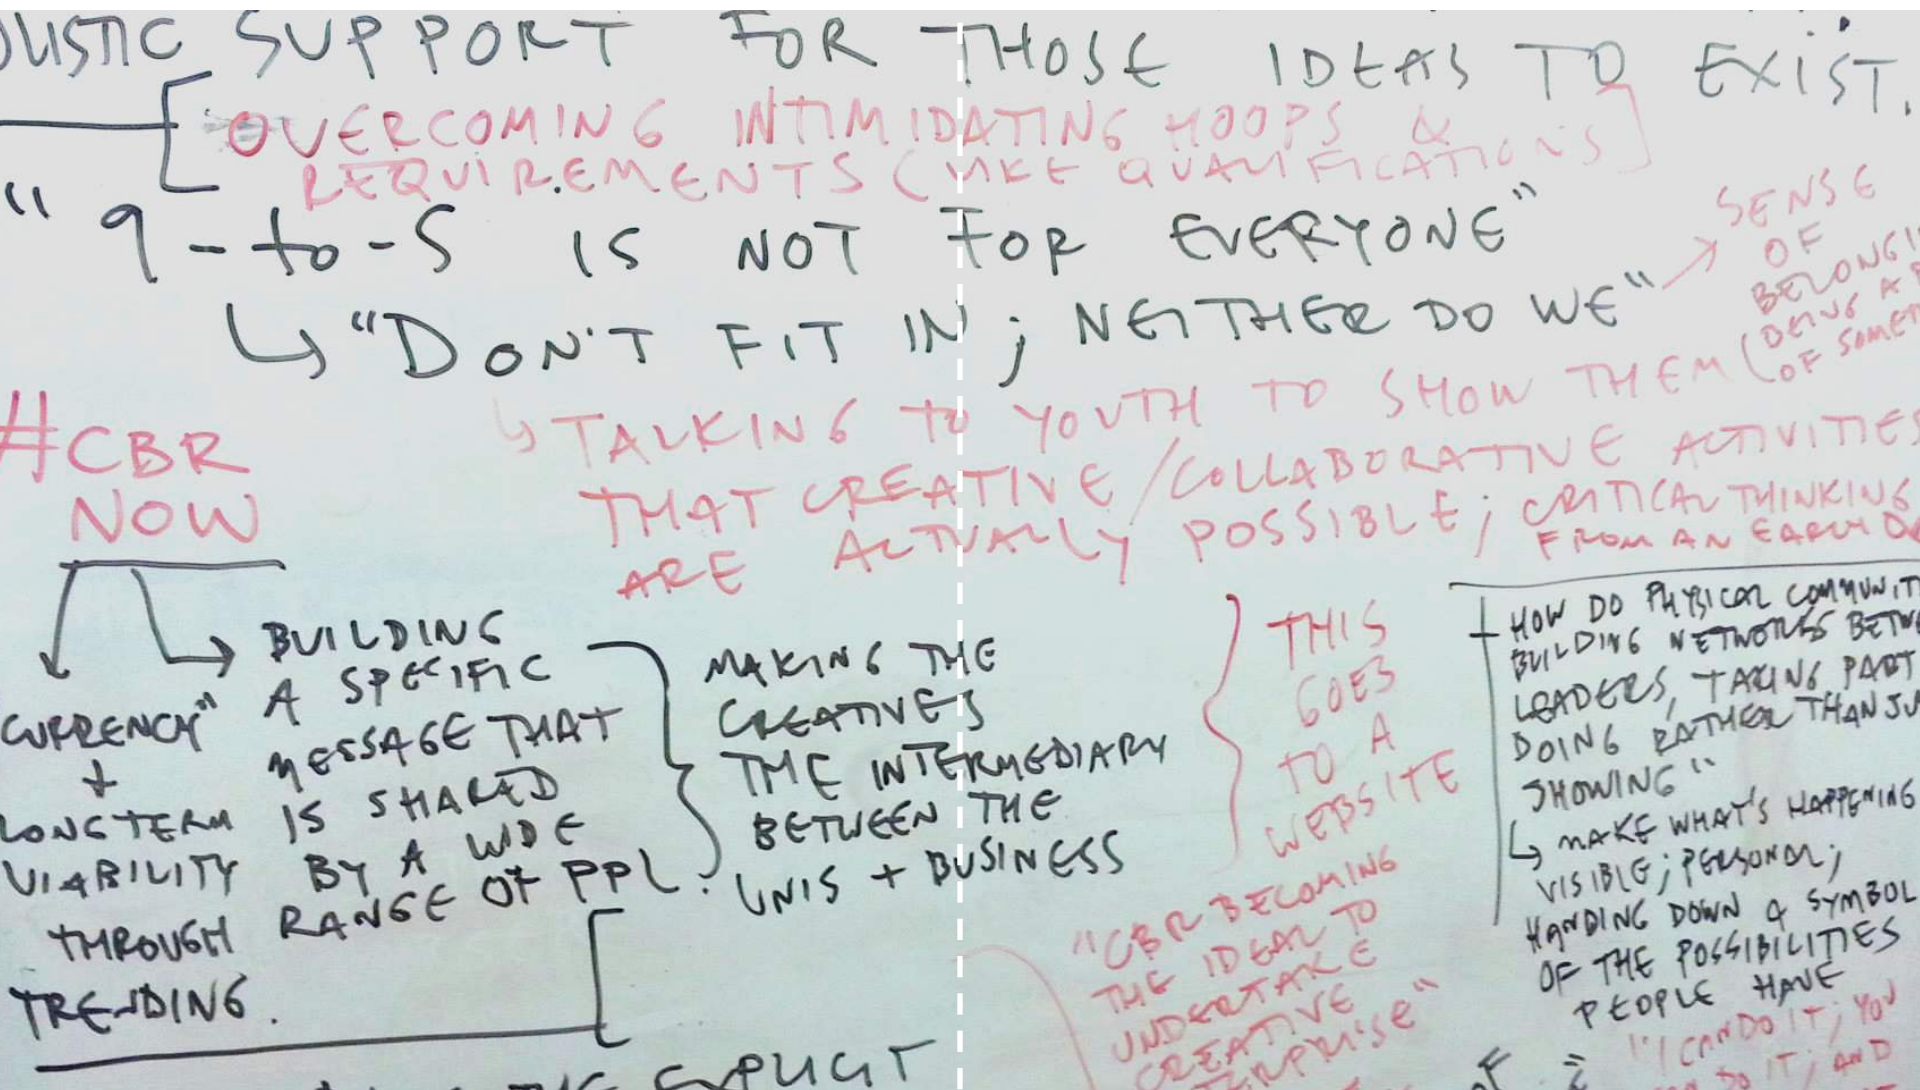 SUPPORT FOR THOSE IDEAS TO EXIST.
OVERCOMING INTIMIDATING HOOPS &
REQUIREMENTS (LIKE QUALIFICATIONS]
" 9-to-5 IS NOT FOR EVERYONE"
"DON'T FIT IN; NEITHER DO WE"
SENSE
OF
BEING A
OF
TALKING TO YOUTH TO SHOW THEM
THAT CREATIVE/COLLABORATIVE ACTIVITIES
ARE ACTUALLY POSSIBLE; CRITICAL THINKING
FROM AN EARLY
#CBR
NOW
CURRENCY"
+
LONG TERM
VIABILITY
THROUGH
TRENDING.
BUILDING
A SPECIFIC
MESSAGE THAT
IS SHARED
BY A WIDE
RANGE OF PPL.
MAKING THE
CREATIVES
THE INTERMEDIARY
BETWEEN THE
UNIS + BUSINESS
THIS
GOES
TO A
WEBSITE
"CBR BECOMING
THE IDEAL TO
UNDERTAKE
CREATIVE
+ HOW DO PHYSICAL
BUILDING NETWORKS
LEADERS, TAKING PART
DOING RATHER THAN
SHOWING"
MAKE WHAT'S HAPPENING
VISIBLE; PERSONAL;
HANDING DOWN A SYMBOL
OF THE POSSIBILITIES
PEOPLE HAVE
"I CAN DO IT; YOU
IT; AND
EXPLICIT